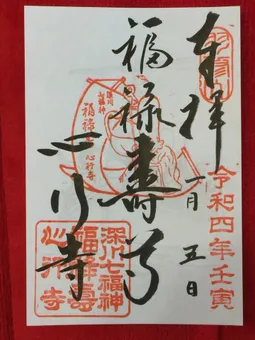 奉拝
令和四年壬寅
一月五日
福禄寿尊
深川
七福神
福禄寿
心行寺
心行寺
深川七福神
福禄壽
心行寺